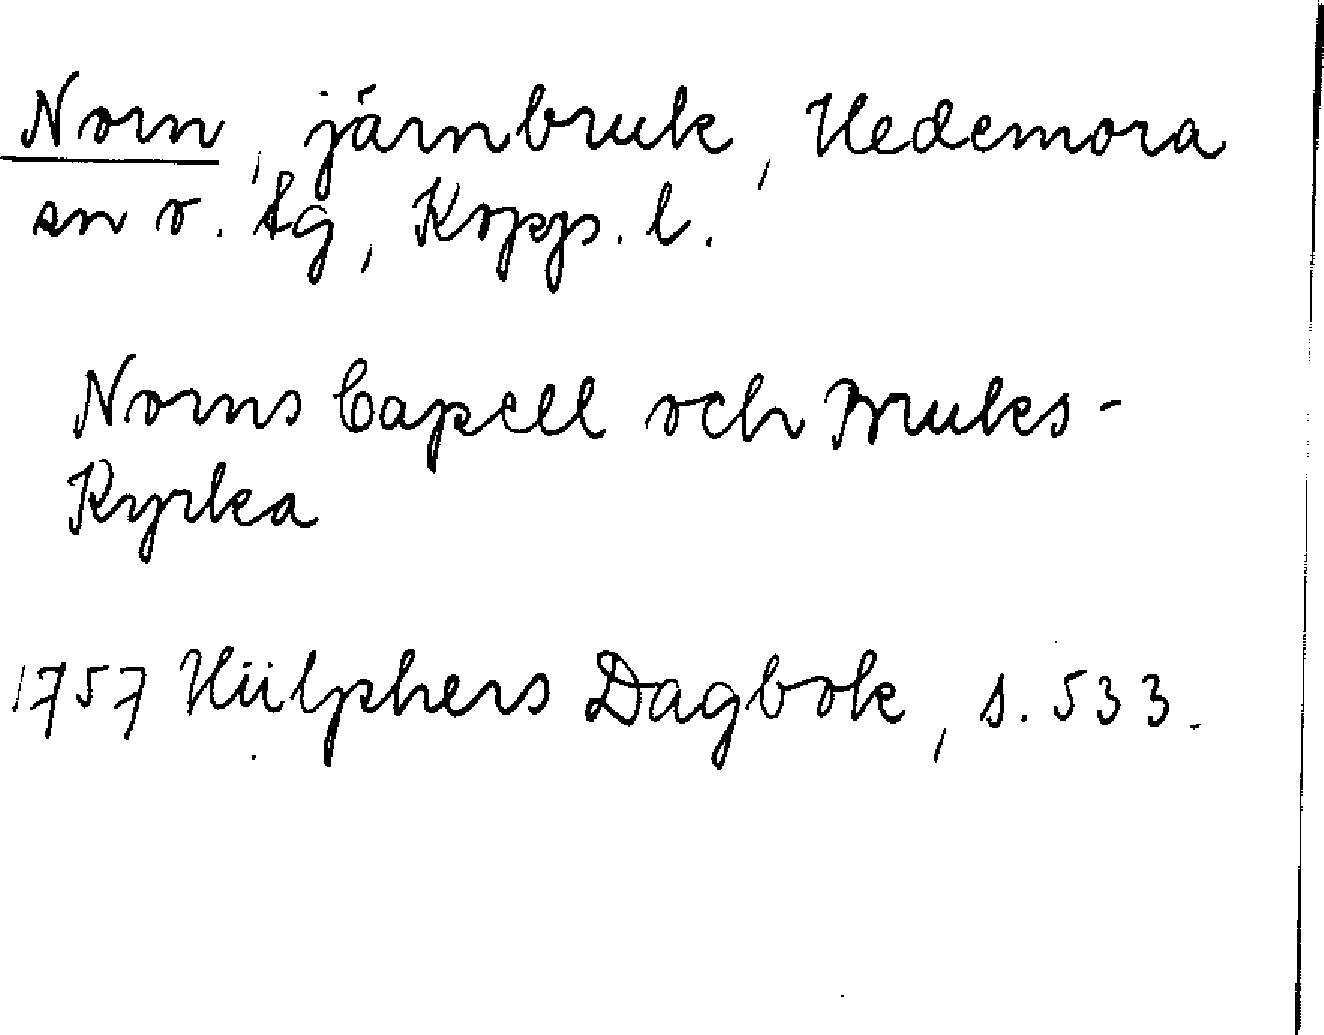 Norn, järnbruk, Hedemora
sn o. tg, Kopp. l.
Norns Capell och Bruks-
Kyrka
1757 Hülphers Dagbok, s. 533.